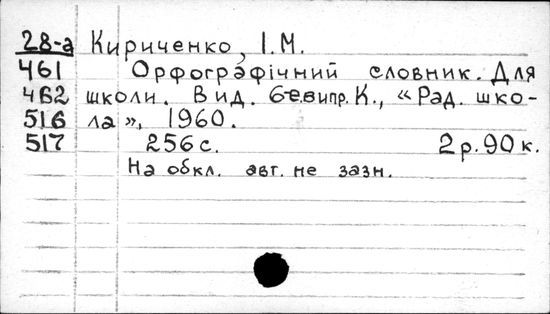 28-а Кириченко, І.М.
461 Орфографічний словник. Для
462 школи. Вид. 6-е випр. К., «Рад. шко-
516 ла», 1960.
517 256 с. 2 р. 90 к.
На обкл. авт. не зазн.